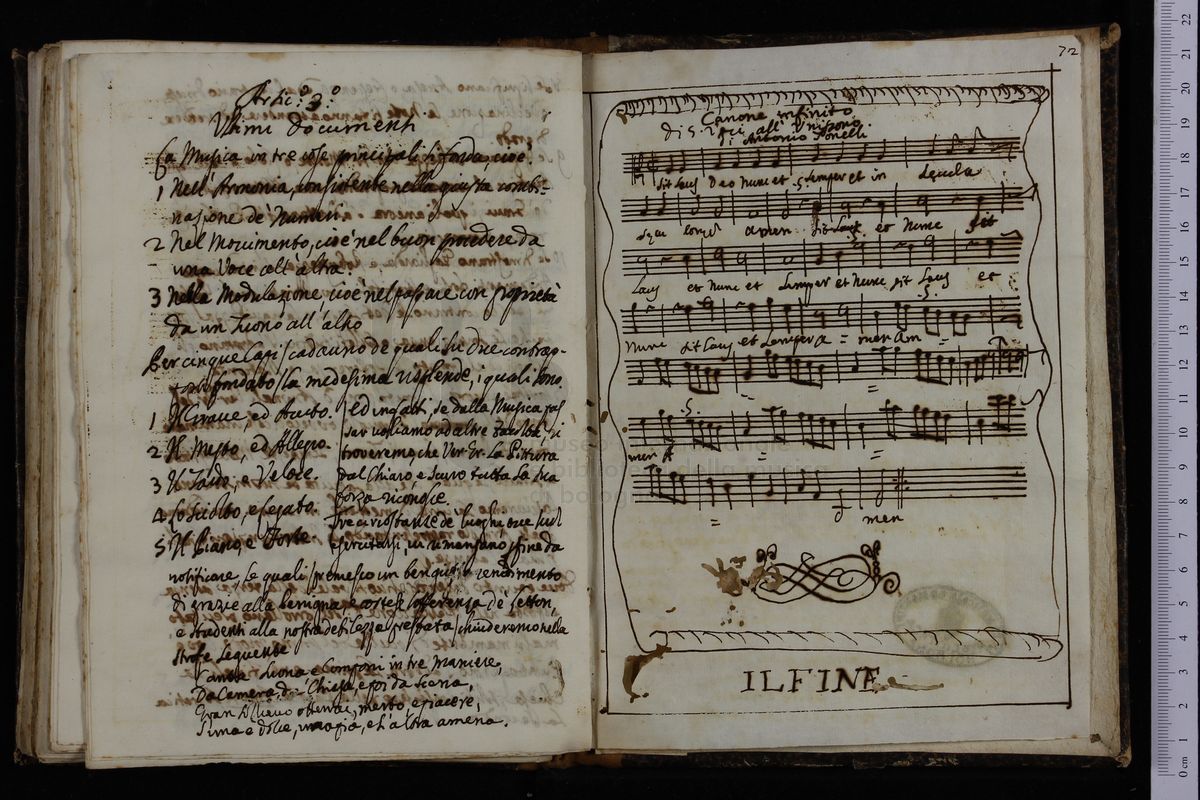 Artic.º 3.º
Vltimi documenti
La Musica in tre cose principali si fonda, cioè
1 Nell'Armonia, consistente nella giusta combi-
nazione de Numeri
2 Nel Movimento, cioè nel buon procedere da
una Voce all'altra.
3 Nella Modulazione cioè nel passare con proprietà
da un Tuono all'altro
Per cinque Capi, cadauno de quali hà due contrap-
la medesima risplende, i quali sono
1 Il Grave, ed Acuto.
2 Il Mesto, ed Allegro.
3 Il Tardo, e Veloce.
4 Lo Sciolto, e legato.
5 Il Piano, e Forte
ed infatti, se dalla Musica pas
sar vogliamo ad altre facoltà, si
troverem che Ver. Gr. La Pittura
dal Chiaro e scuro tutta la sua
forza riconosce
tre circostanze de luoghi ove suol
esercitarsi, ci rimangano infine da
notificare, le quali premesso un ben giusto rendimento
di grazie alla benigna, e cortese sofferenza de Lettori,
e studenti alla nostra debolezza prestata, chiuderemo nella
strofe seguente
Canta, suona e Componi in tre maniere,
Da Camera, da Chiesa, e poi da Scena,
Gran rilievo otterrai, merto e piacere,
L'una e dolce, una pia, e l'altra amena.
72
Canone infinito
di 5. Voci all'Unisono
di Antonio Tonelli
Sit Laus Deo Nunc et Semper et in Secula
Secu lorum amen Sit Laus et Nunc Sit
Laus et Nunc et Semper et Nunc Sit Laus et
Nunc Sit Laus et Semper A = men Am =
men A = =
= A men
IL FINE